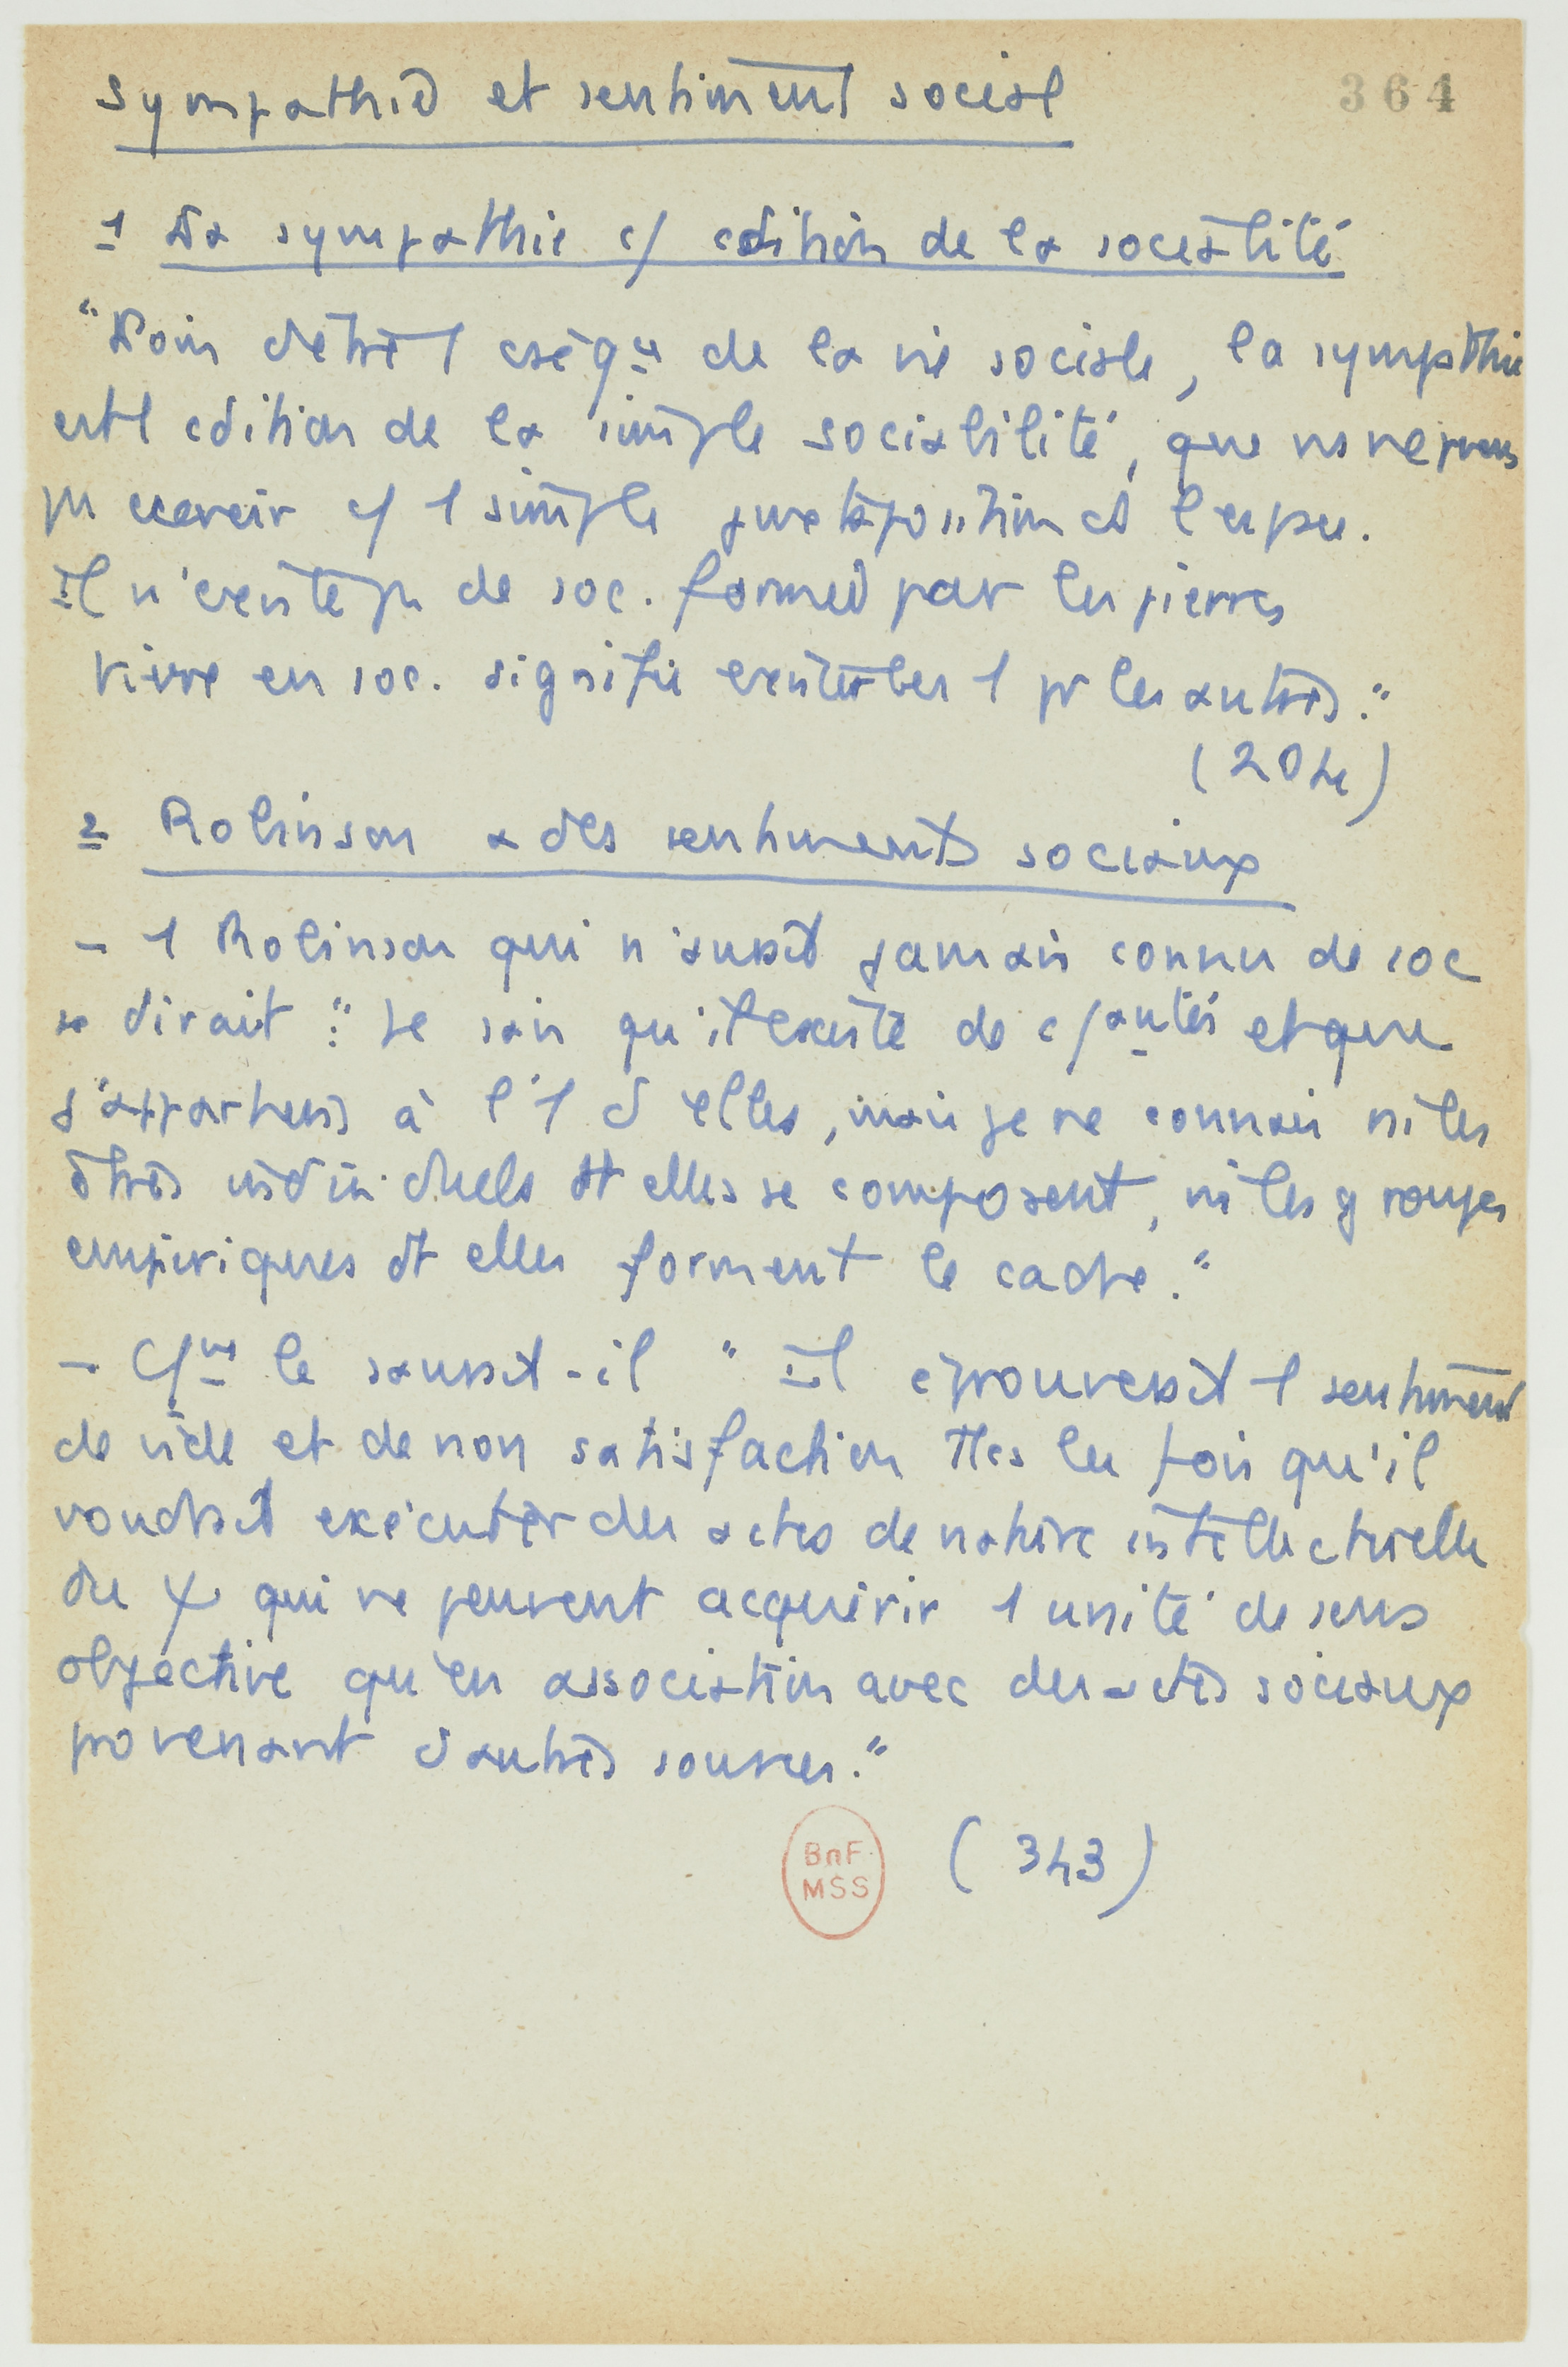 Sympathie et sentiment social
364
1 La sympathie c/ cdition de la socialité
"Loin d'être 1 cséqce de la vie sociale, la sympathie
est 1 cdition de la simple sociabilité, que ns ne pvons
pas ccevoir c/ 1 simple juxtaposition ds l'espace.
Il n'existe pas de soc. formée par les pierres
vivre en soc. signifie exister les 1 pr les autres."
(204)
2 Robinson a des sentiments sociaux
- 1 Robinson qui n'aurait jamais connu de soc
se dirait : "Je sais qu'il existe de c/autés et que
j'appartiens à l'1 d'elles, mais je ne connais ni les
êtres individuels dt elles se composent, ni les groupes
empiriques dt elles forment le cadre."
- C/mt le saurait-il " Il éprouverait 1 sentiment
de vide et de non satisfaction ttes les fois qu'il
voudrait exécuter des actes de nature intellectuelle
ou ψ qui ne peuvent acquérir 1 unité de sens
objective qu'en association avec des actes sociaux
provenant d'autres sources."
BnF
MSS
(343)